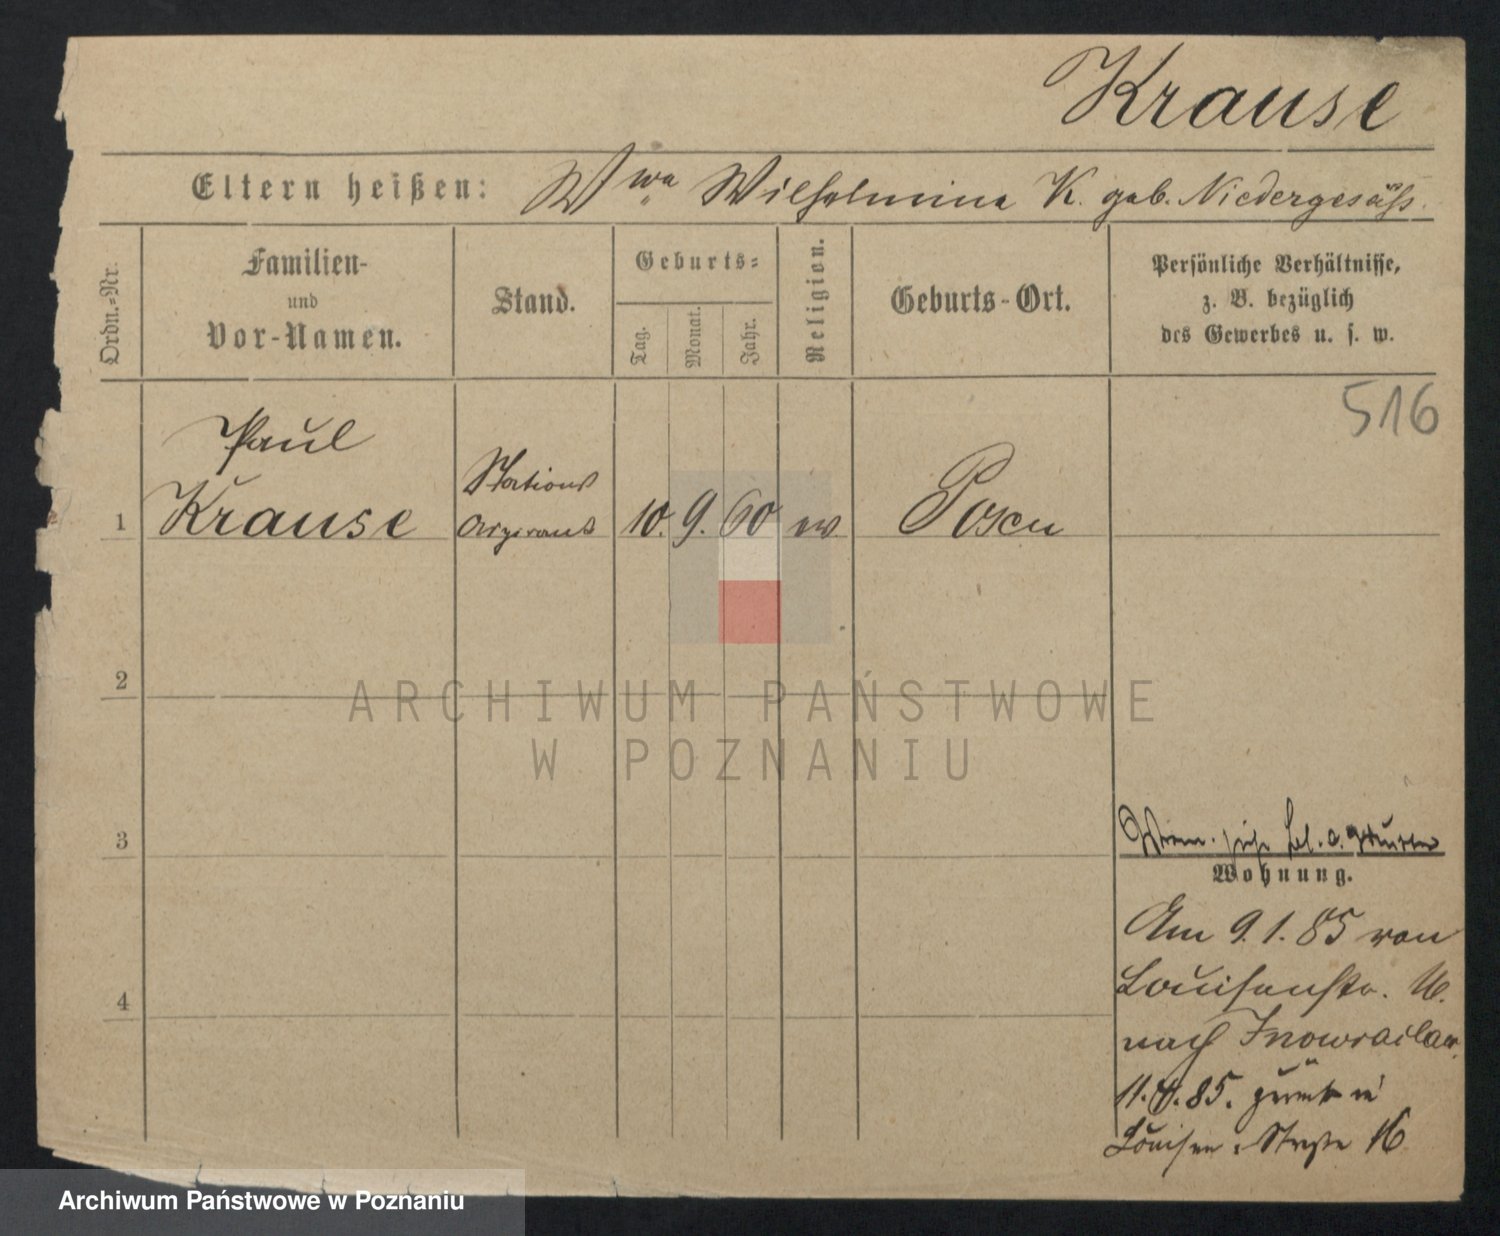 Krause
Eltern heißen: Wwe Wilhelmine K. geb. Niedergesäss.
Ordn.-Nr.
Familien-
und
Vor-Namen.
Stand.
Geburts-
Tag.
Monat.
Jahr.
Religion.
Geburts-Ort.
Persönliche Verhältnisse,
z. B. bezüglich
des Gewerbes u. s. w.
516
Paul
1 Krause
Stations
Aspirant
10. 9. 60 ev Posen
2
ARCHIWUM PAŃSTWOWE
W POZNANIU
3
Wohnung.
Am 9. 1. 85 von
Louisenstr. 16.
nach Inowraclaw.
4
11. 4. 85. zurück in
Louisen-Straße 16
Archiwum Państwowe w Poznaniu